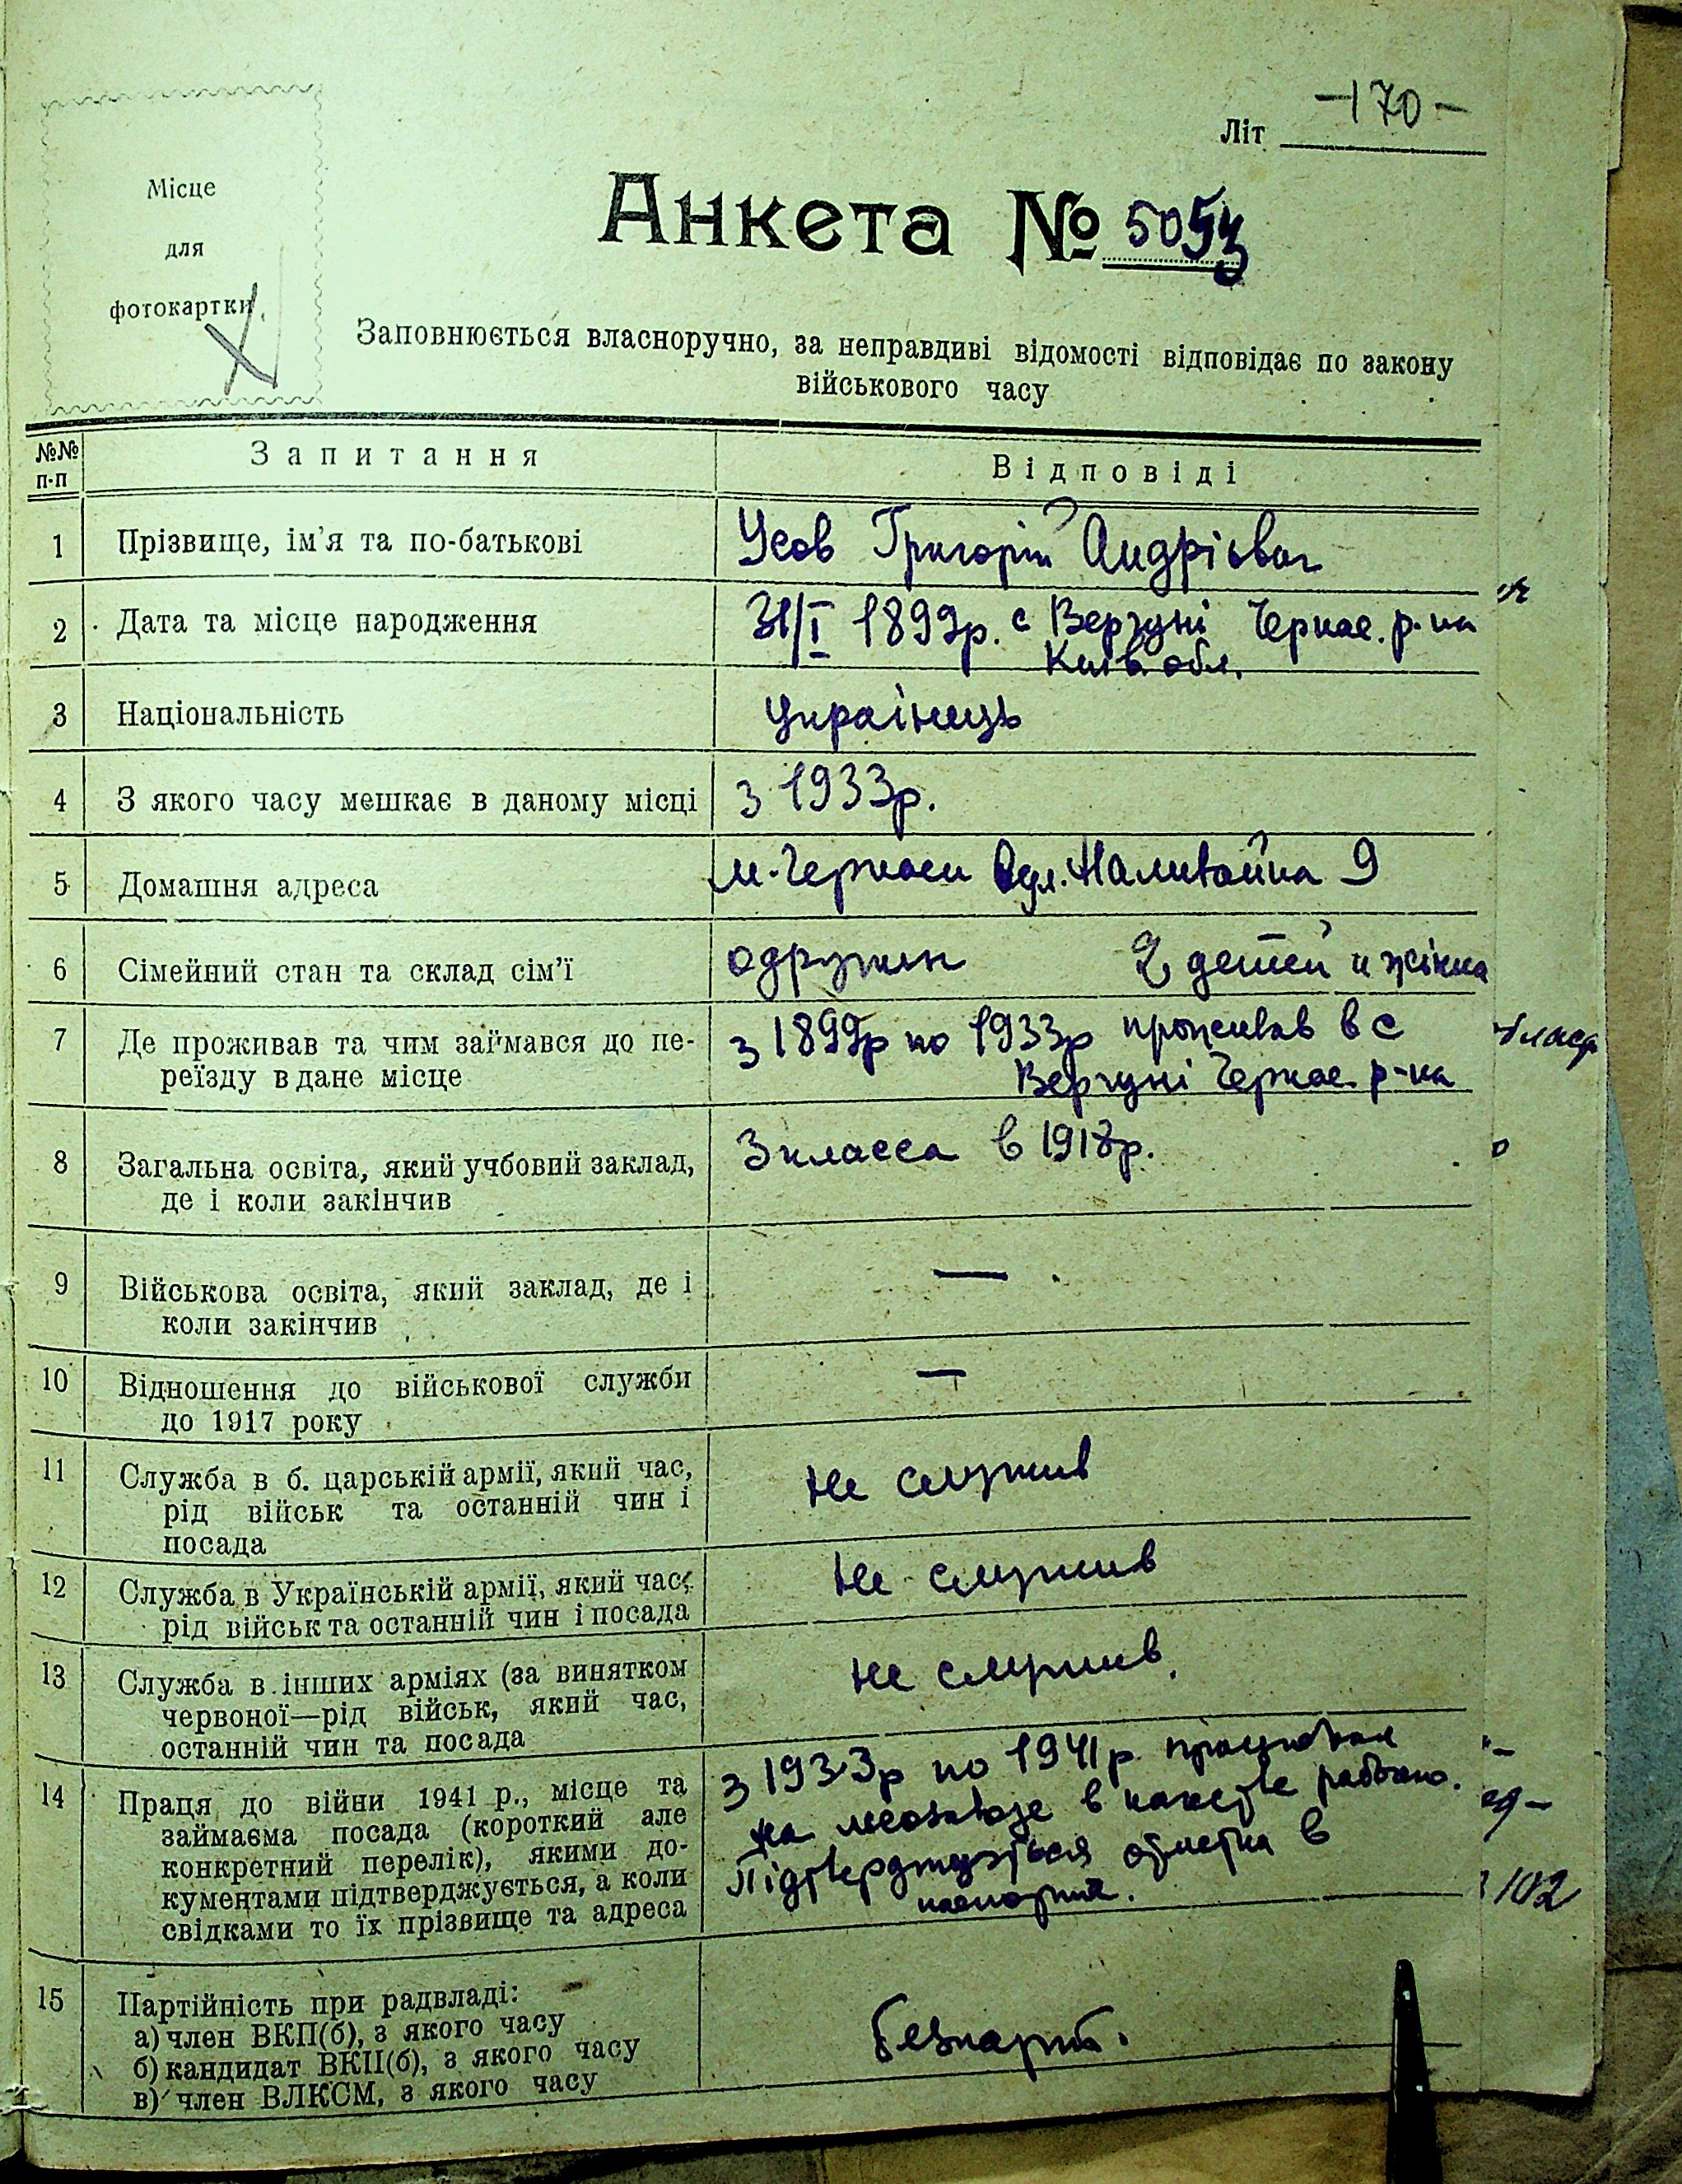 Місце
для
фотокартки
Літ -170-
Анкета №
Заповнюється власноручно, за неправдиві відомості відповідає по закону
військового часу
№№ п-п Запитання Відповіді
1 Прізвище, ім'я та по-батькові Усов Григорій Андрієвич
2 Дата та місце народження 31/I 1899р. с Вергуні Черкас. р-на
Київ. обл.
3 Національність українець
4 З якого часу мешкає в даному місці з 1933р.
5 Домашня адреса м. Черкаси вул. Наливайка 9
6 Сімейний стан та склад сім'ї одружин 2 детей и жінка
7 Де проживав та чим займався до пе- з 1899р по 1933р проживав в с
реїзду в дане місце Вергуні Черкас. р-на
8 Загальна освіта, який учбовий заклад, 3 класса в 1918р.
де і коли закінчив
9 Військова освіта, який заклад, де і —
коли закінчив
10 Відношення до військової служби —
до 1917 року
11 Служба в б. царській армії, який час, Не служив
рід військ та останній чин і
посада
12 Служба в Українській армії, який час, Не служив
рід військ та останній чин і посада
13 Служба в інших арміях (за винятком не служив
червоної—рід військ, який час,
останній чин та посада
14 Праця до війни 1941 р., місце та з 1933р по 1941р.
займаєма посада (короткий але на в
конкретний перелік), якими до- Підтверджується в
кументами підтверджується, а коли
свідками то їх прізвище та адреса
15 Партійність при радвладі:
а) член ВКП(б), з якого часу безпарт.
б) кандидат ВКП(б), з якого часу
в) член ВЛКСМ, з якого часу
102